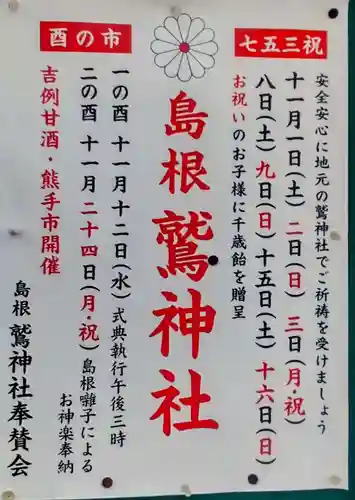 七五三祝
安全安心に地元の鷲神社でご祈祷を受けましょう
十一月一日(土) 二日(日) 三日(月・祝)
八日(土) 九日(日) 十五日(土) 十六日(日)
お祝いのお子様に千歳飴を贈呈
島根 鷲神社
酉の市
一の酉 十一月十二日(水) 式典執行午後三時
二の酉 十一月二十四日(月・祝) 島根囃子による
お神楽奉納
吉例甘酒・熊手市開催
島根 鷲神社奉賛会